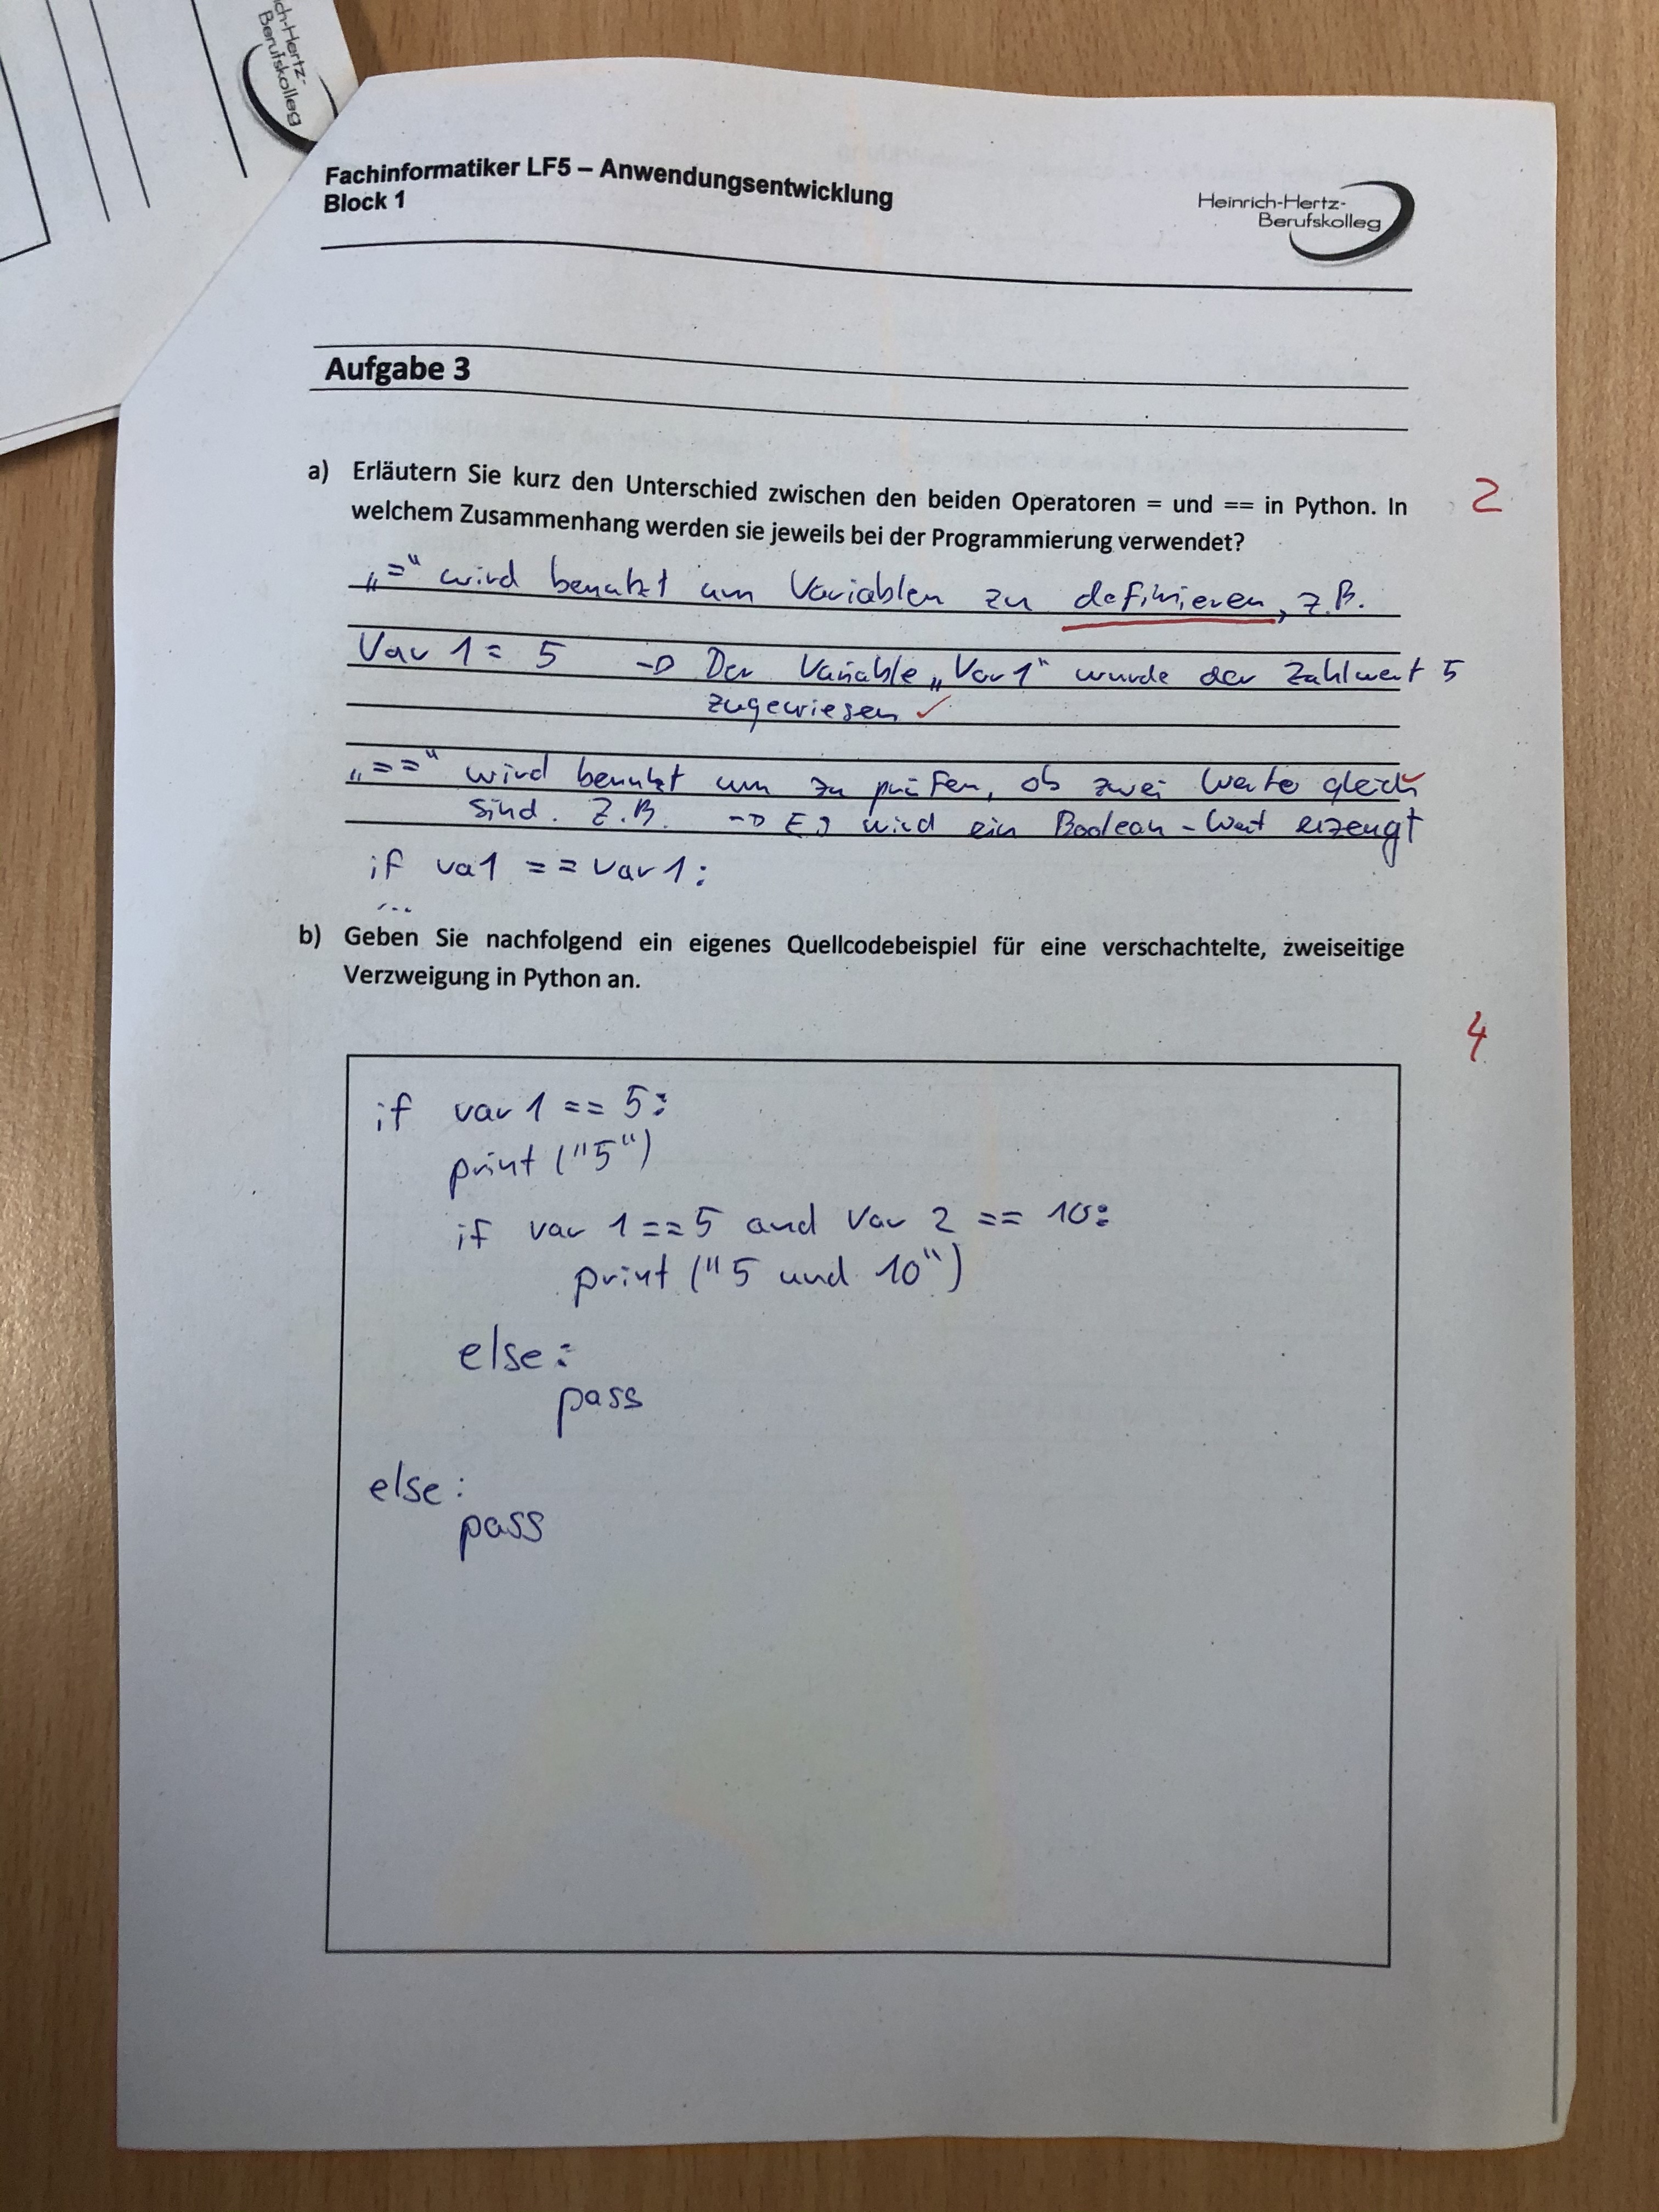 ch-Hertz-
Berufskolleg
Fachinformatiker LF5 – Anwendungsentwicklung
Block 1
Heinrich-Hertz-
Berufskolleg
Aufgabe 3
a) Erläutern Sie kurz den Unterschied zwischen den beiden Operatoren = und == in Python. In
welchem Zusammenhang werden sie jeweils bei der Programmierung verwendet?
2
„=“ wird benutzt um Variablen zu definieren, z.B.
Var 1 = 5 → Der Variable „Var 1“ wurde der Zahlwert 5
zugewiesen ✓
„==“ wird benutzt um zu prüfen, ob zwei Werte gleich ✓
sind. Z.B. → Es wird ein Boolean-Wert erzeugt
if va1 == var1:
...
b) Geben Sie nachfolgend ein eigenes Quellcodebeispiel für eine verschachtelte, zweiseitige
Verzweigung in Python an.
4
if var 1 == 5:
print ("5")
if var 1 == 5 and Var 2 == 10:
print ("5 und 10")
else:
pass
else:
pass